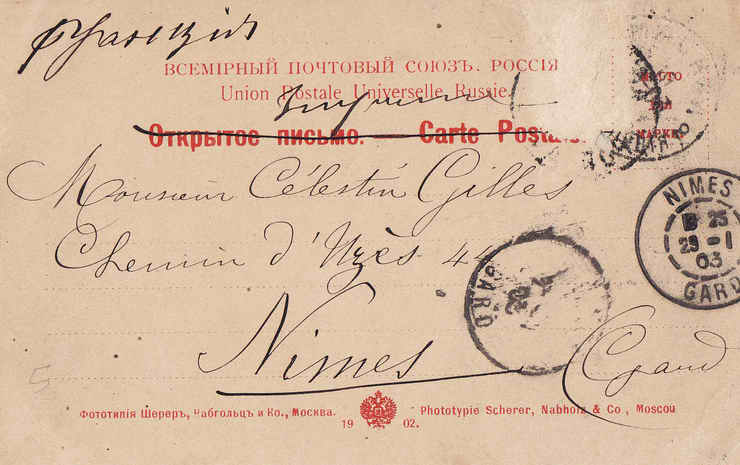 Франція
ВСЕМІРНЫЙ ПОЧТОВЫЙ СОЮЗЪ. РОССІЯ
Union Postale Universelle. Russie.
Imprimé
МѢСТО
ДЛЯ
МАРКИ
Открытое письмо. — Carte Postale.
Monsieur Célestin Gilles
Chemin d'Uzès 44
Nimes Gard
NIMES
18 25
29 -1
03
GARD
GARD
Фототипія Шереръ, Набгольцъ и Ко., Москва.
Phototypie Scherer, Nabholz & Co, Moscou
1902.